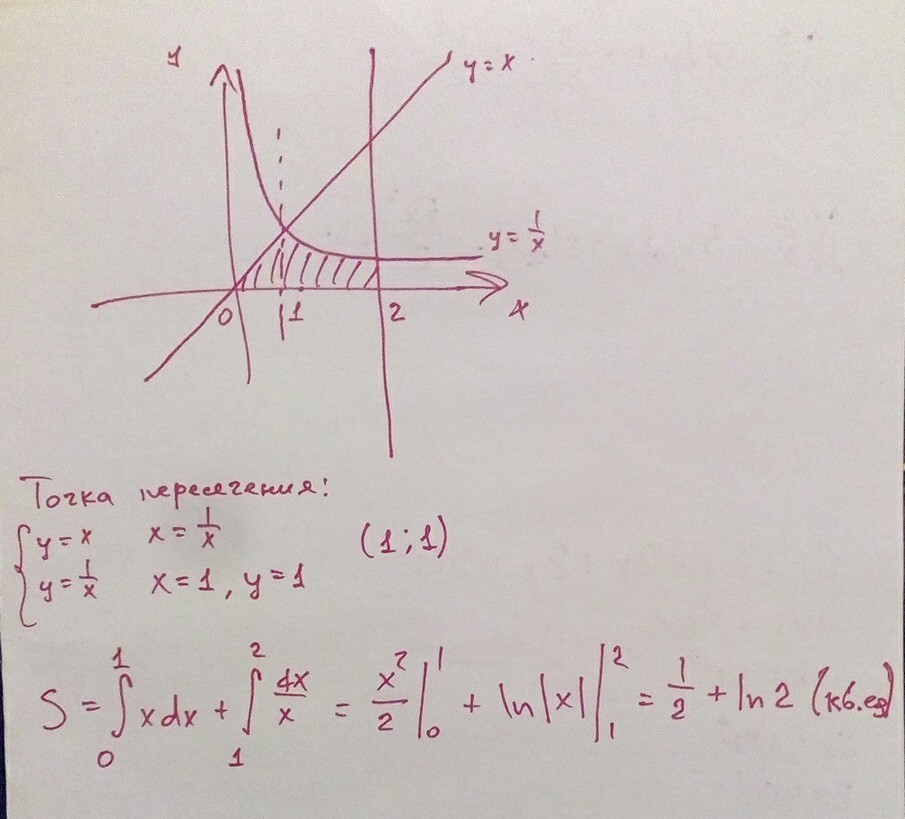 y
y = x
y = 1/x
0 1 2 x
Точка пересечения:
{ y = x x = 1/x (1; 1)
y = 1/x x = 1, y = 1
S = ∫₀¹ x dx + ∫₁² dx/x = x²/2 |₀¹ + ln|x| |₁² = 1/2 + ln 2 (кв.ед)